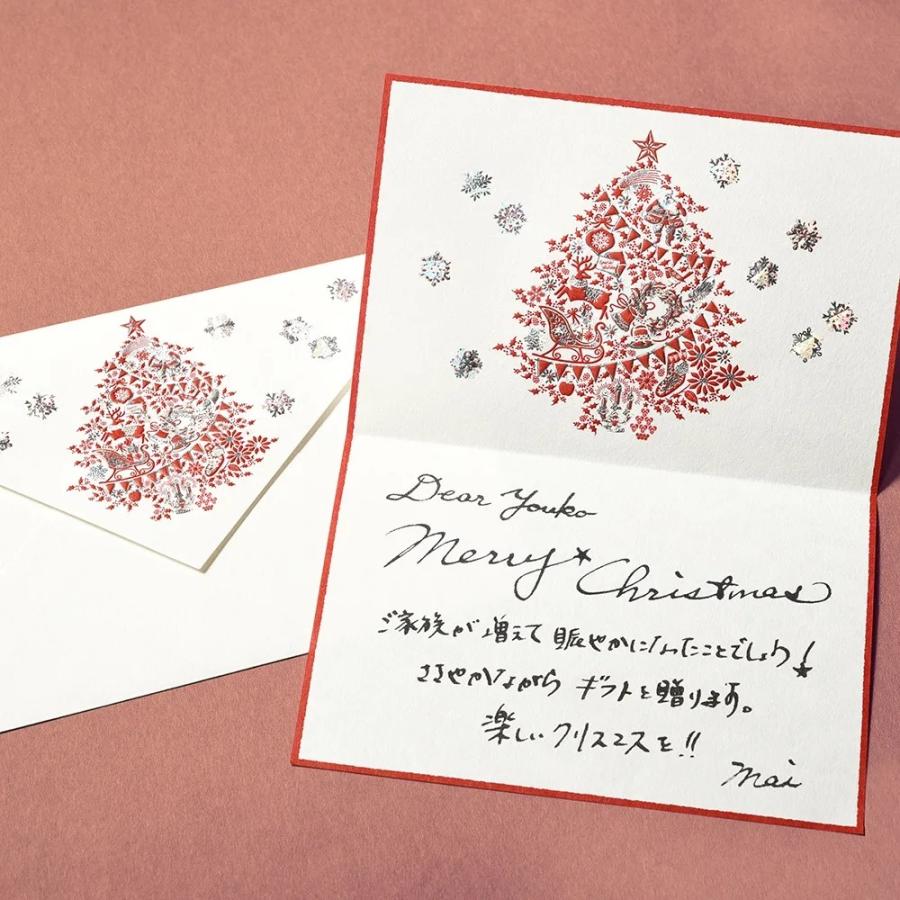 Dear Youko
Merry★Christmas
ご家族が増えて賑やかになったことでしょう!
ささやかながら ギフトを贈ります。
楽しいクリスマスを!!
Mai